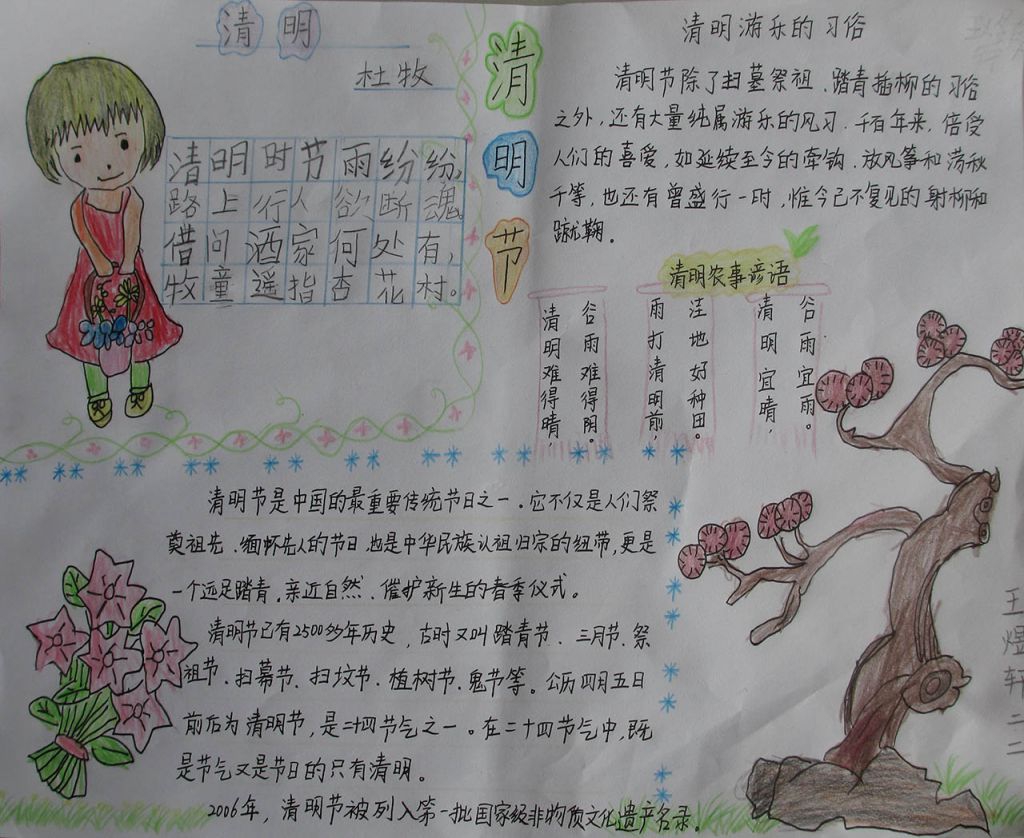 清明
杜牧
清明时节雨纷纷,
路上行人欲断魂。
借问酒家何处有,
牧童遥指杏花村。
清明节
清明游乐的习俗
清明节除了扫墓祭祖、踏青插柳的习俗
之外,还有大量纯属游乐的风习.千百年来,倍受
人们的喜爱,如延续至今的牵钩、放风筝和荡秋
千等,也还有曾盛行一时,惟今已不复见的射柳和
蹴鞠。
清明农事谚语
清明难得晴,
谷雨难得阴。
雨打清明前,
洼地好种田。
清明宜晴,
谷雨宜雨。
清明节是中国的最重要传统节日之一。它不仅是人们祭
奠祖先、缅怀先人的节日,也是中华民族认祖归宗的纽带,更是
一个远足踏青、亲近自然、催护新生的春季仪式。
清明节已有2500多年历史,古时又叫踏青节、三月节、祭
祖节、扫幕节、扫坟节、植树节、鬼节等。公历四月五日
前后为清明节,是二十四节气之一。在二十四节气中,既
是节气又是节日的只有清明。
2006年,清明节被列入第一批国家级非物质文化遗产名录。
王煜轩 二二